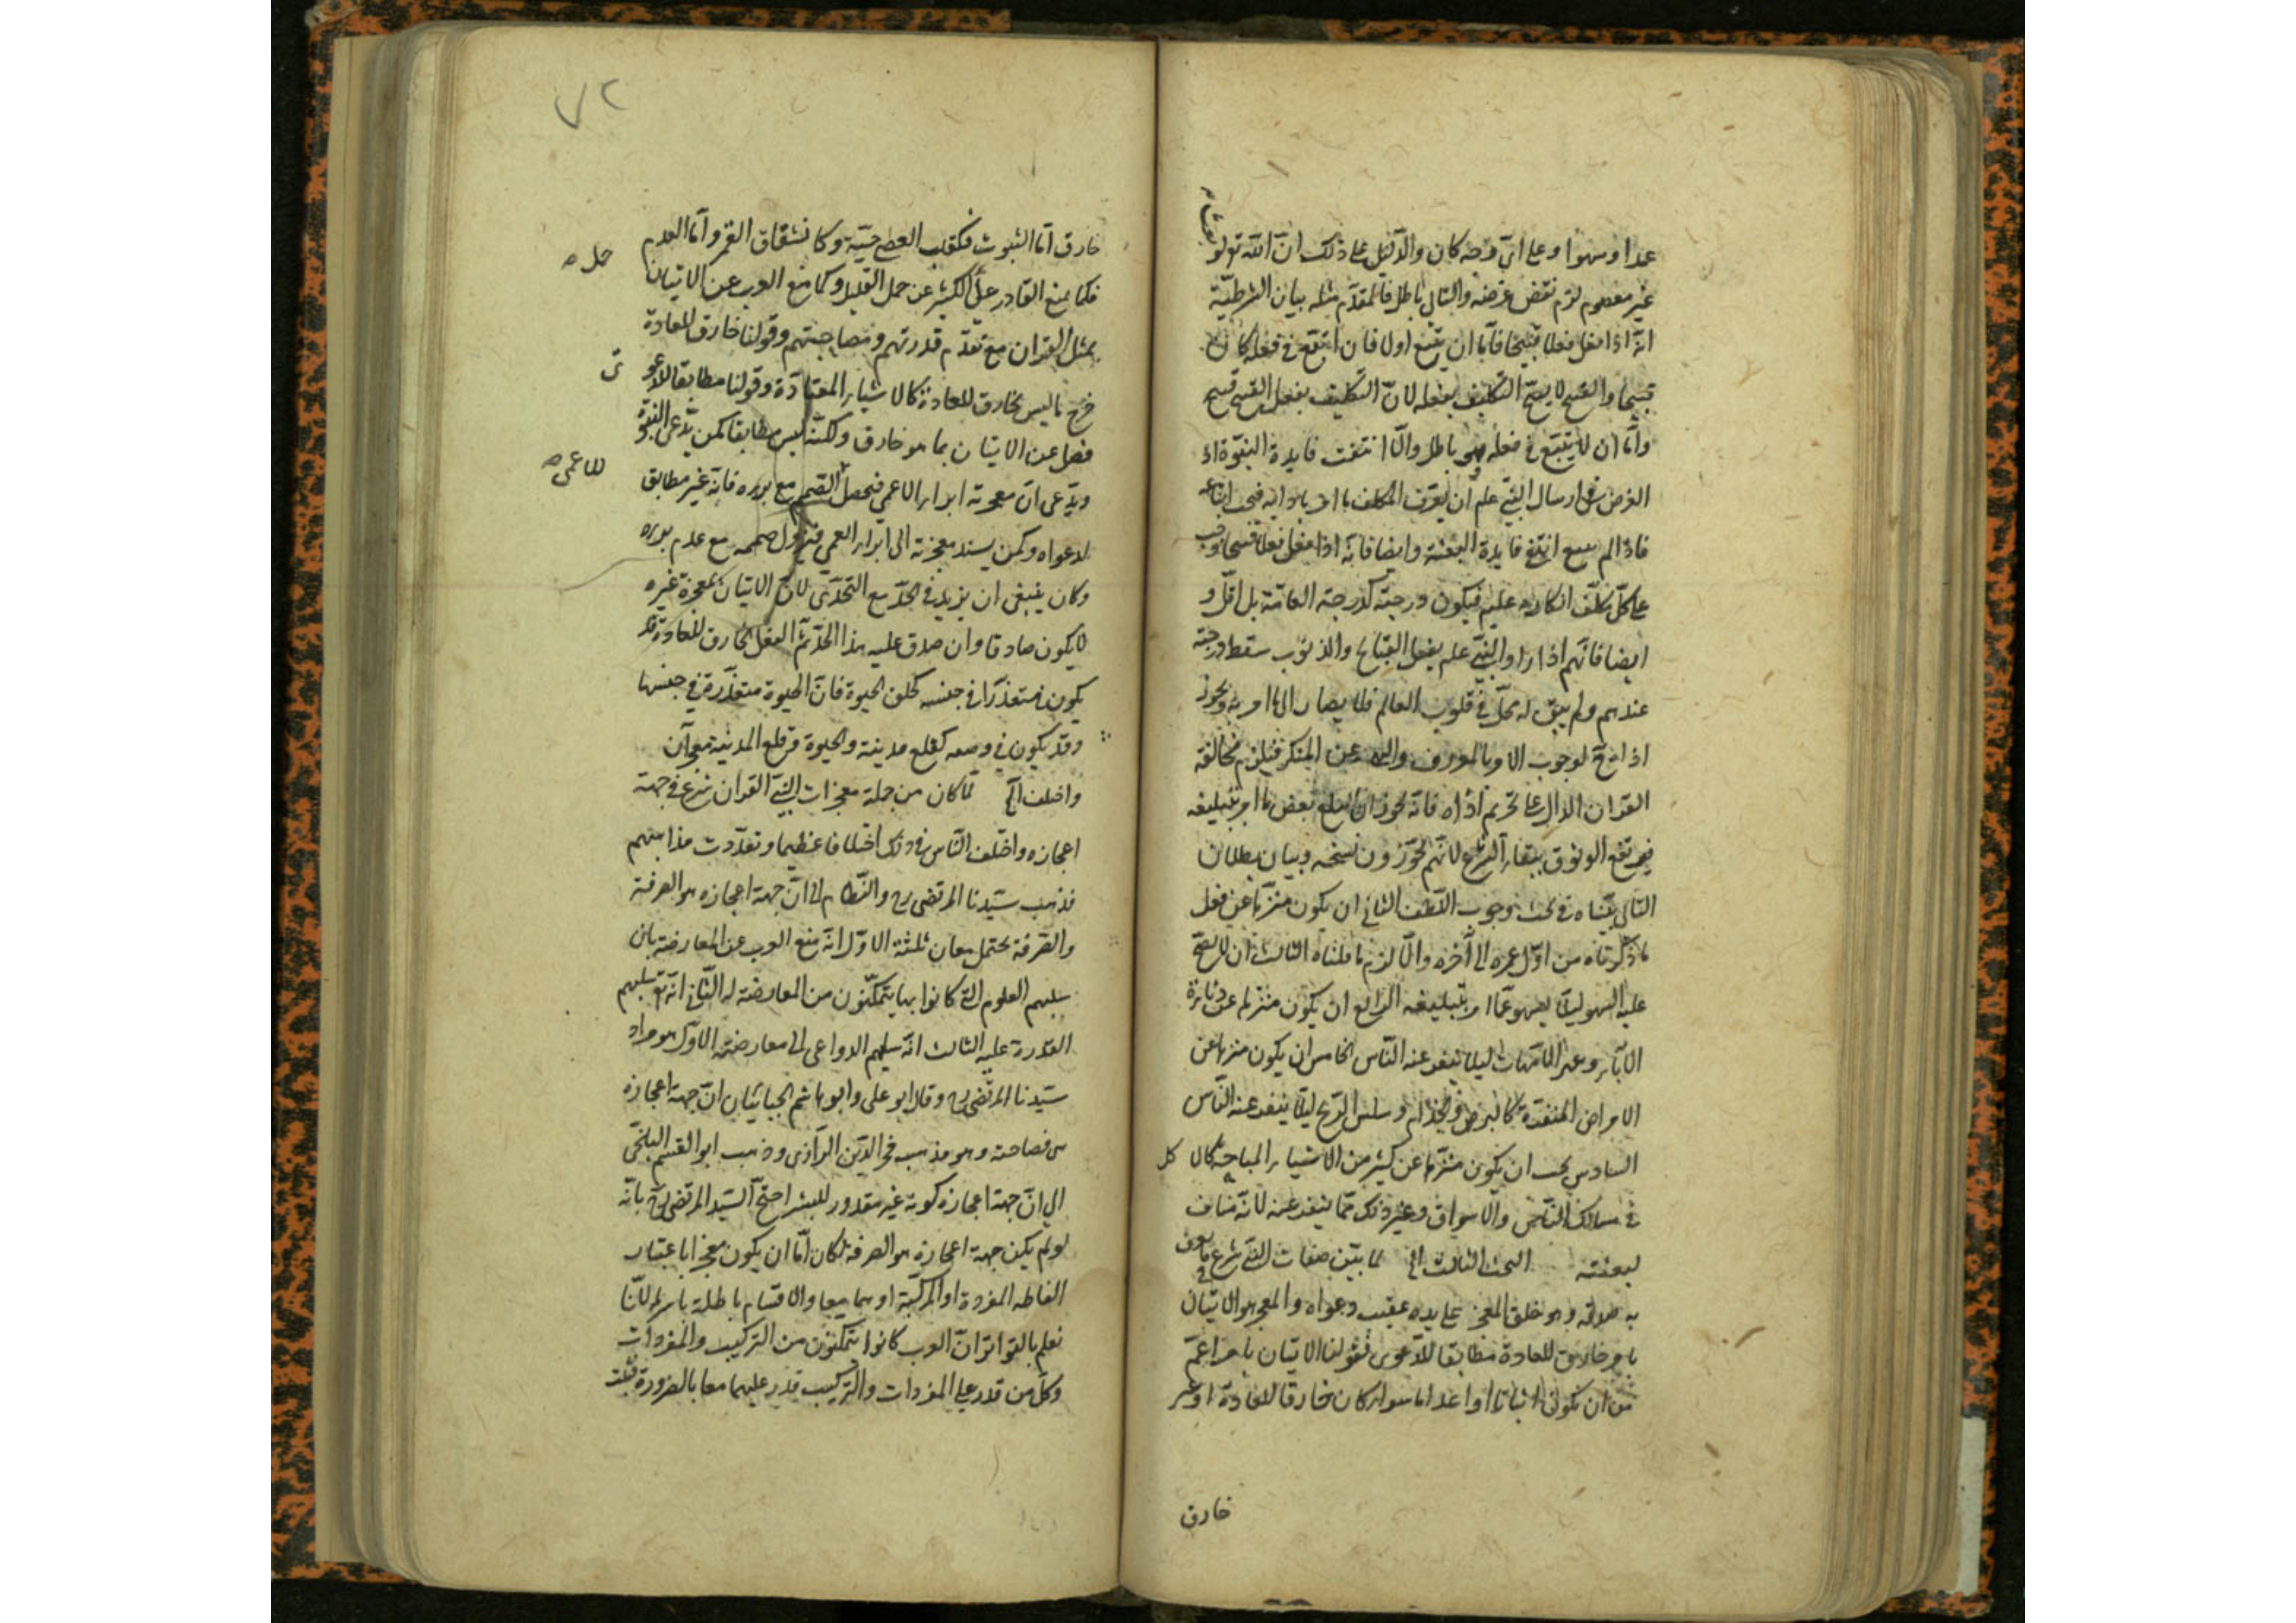 عمدا وسهوا وعلى اىّ وجه كان والدّليل على ذلك انّ اللّه تع لو بعث
غير معصوم لزم نقض غرضه والتالى باطل فالمقدّم مثله بيان الشرطيّة
انّه اذا فعل فعلا قبيحا فامّا ان يتبع اولا فان اتبع فى فعله كان
قبيحا والقبيح لا يصحّ التكليف بفعله لانّ التكليف بفعل القبيح قبيح
وامّا ان لا يتبع فى فعله فهو باطل والّا انتفت فايدة النبوّة اذ
الغرض فى ارسال النبىّ علم ان يعرّف المكلف ما امر باداية فيجب اتباعه
فاذا لم يتبع انتفى فايدة البعثة وايضا فانّه اذا فعل فعلا قبيحا وجب
على كلّ مكلّف انكاره عليه فيكون درجته كدرجة العامّة بل اقلّ و
ايضا فانّهم اذا راوا النبىّ علم يفعل القبايح والذنوب سقط درجته
عندهم ولم يبق له محلّ فى قلوب العالم فلا يصار الى ما امر به ويجوز
اذا يح لوجوب الامر بالمعروف والنهى عن المنكر فيلزم مخالفة
القران الدالّ على تحريم اذاه فانّه يجوز ان لا يبلغ بعض ما امر بتبليغه
فيرتفع الوثوق ببقاء الشرع لانّهم يجوّزون نسخه وبيان بطلان
التالى بيّناه فى بحث وجوب اللّطف الثانى ان يكون منزّها عن فعل
ما ذكرناه من اوّل عمره الى آخره والّا لزم ما قلناه الثالث ان لا يصحّ
عليه السهو ليلّا يسهو عمّا امر بتبليغه الرابع ان يكون منزّها عن دناءة
الآباء وعهر الامّهات ليلا ينفر عنه النّاس الخامس ان يكون منزها عن
الامراض المنفّرة كالبرص والجذام وسلس الرّيح ليلّا ينفر عنه النّاس
السادس يجب ان يكون منزّها عن كثير من الاشياء المباحة كالاكل
فى مسالك النّاس والاسواق وغير ذلك ممّا ينفر عنه لانّه مناف
لبعثته البحث الثالث الخ لما بيّن صفات النبىّ شرع فى ما يعرف
به صدقه وهو خلق المعجز على يده عقيب دعواه والمعجز هو الاتيان
بامر خارق للعادة مطابقا للدّعوى فقولنا الاتيان بامر اعمّ
من ان يكون اثباتا او اعداما سواء كان خارقا للعادة او غير
خارق
٧٢
خارق امّا الثبوت فكقلب العصا حيّة وكانشقاق القمر وامّا العدم
فكما يمنع القادر على الكثير عن حمل القليل وكما منع العرب عن الاتيان
حمل صه
بمثل القران مع تقدّم قدرتهم وفصاحتهم وقولنا خارق للعادة
خرج ما ليس بخارق للعادة كالاشياء المعتادة وقولنا مطابقا للدّعوى
فصل عن الاتيان بما هو خارق ولكنّه ليس مطابقا كمن يدّعى النبوّة
ويدّعى انّ معجزته ابراء الاعمى فيحصل الصّمم مع برءه فانّه غير مطابق
للاعمى صه
لدعواه وكمن يسند معجزته الى ابراء العمى فيزول صممه مع عدم برءه
وكان ينبغى ان يزيد فى الحدّ مع التحدّى لانّ الاتيان بمعجزة غيره
لا يكون صادقا وان صدق عليه هذا الحدّ ثمّ الفعل الخارق للعادة قد
يكون متعذّرا فى جنسه كخلق الحيوة فانّ الحيوة متعذّرة فى جنسها
وقد يكون فى وصفه كقلع مدينة والحيوة وقلع المدينة معجزان
واختلف الخ لمّا كان من جملة معجزات النبىّ القران شرع فى جهة
اعجازه واختلف النّاس فى ذلك اختلافا عظيما وتعدّدت مذاهبهم
فذهب سيّدنا المرتضى ره والنّظام الى انّ جهة اعجازه هو الصرفة
والصّرفة يحتمل معان ثلثة الاوّل انّه منع العرب عن المعارضة بان
سلبهم العلوم الّتى كانوا بها يتمكّنون من المعارضة له الثّانى انّه تع سلبهم
القدرة عليه الثالث انّه سلبهم الدواعى الى معارضته الاوّل هو مراد
سيّدنا المرتضى ره وقال ابو على وابو هاشم الجبائيان انّ جهة اعجازه
هى فصاحته وهو مذهب فخر الدّين الرّازى وذهب ابو القسم البلخى
الى انّ جهة اعجازه كونه غير مقدور للبشر احتجّ السّيد المرتضى ره بانّه
لو لم يكن جهة اعجازه هو الصرفة لكان امّا ان يكون معجزا باعتبار
الفاظه المفردة او المركّبة او هما معا والاقسام باطلة باسرها لانّا
نعلم بالتواتر انّ العرب كانوا يتمكّنون من التركيب والمفردات
وكلّ من قدر على المفردات والتركيب قدر عليهما معا بالضرورة فثبت